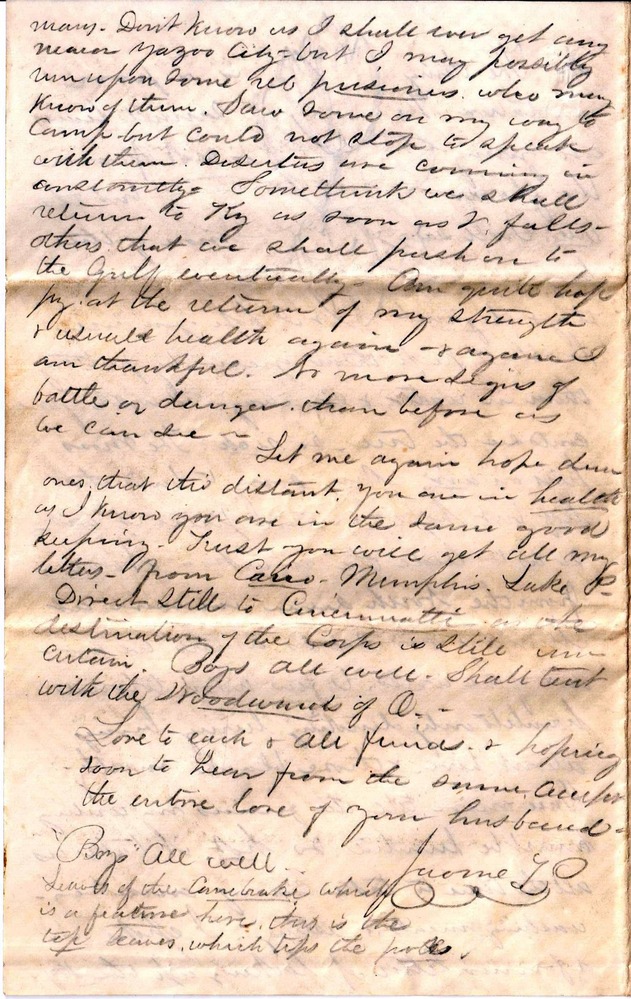 many. Don't Know as I shall ever get any
nearer Yazoo City - but I may possibly
run upon some reb prisioners. who may
Know of them. Saw some on my way to
Camp - but could not stop to speak
with them. Deserters are comming in
constantly - Some think we shall
return to Ky as soon as V. falls -
others. that we shall push on to
the Gulf eventually - Am quite hap
py. at the return of my strength
& usual health again - & again I
am thankful. No more signs of
battle or danger. than before as
we can see -
Let me again hope dear
ones. that tho distant. you are in health
as I know you are in the same good
keeping - Trust you will get all my
letters - from Cairo - Memphis. Lake P -
Direct still to Cincinnatti as the
destination of the Corps is still un
certain. Boys all well - Shall tent
with the Woodwards of O. -
Love to each & all friends. & hoping
soon to hear from the same. accept
the entire love of your husband -
Jerome
Boys all well
Leaves of the Canebrake which
is a feature here. this is the
top leaves. which tips the poles.